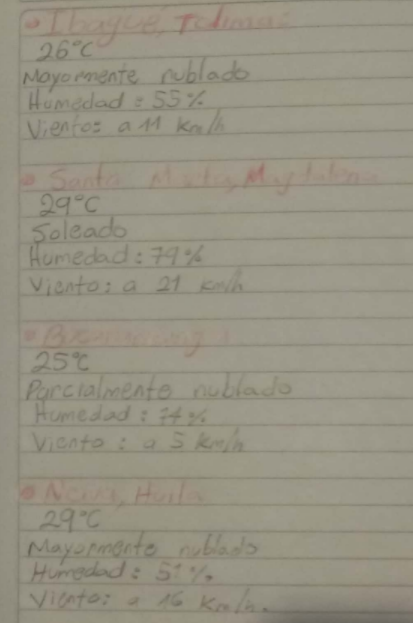 • Ibagué, Tolima:
26°C
Mayormente nublado
Humedad: 55%
Viento: a 11 km/h
• Santa Marta, Magdalena
29°C
Soleado
Humedad: 79%
Viento: a 21 km/h
• Bucaramanga
25°C
Parcialmente nublado
Humedad: 74%
Viento: a 5 km/h
• Neiva, Huila
29°C
Mayormente nublado
Humedad: 51%.
Viento: a 16 km/h.